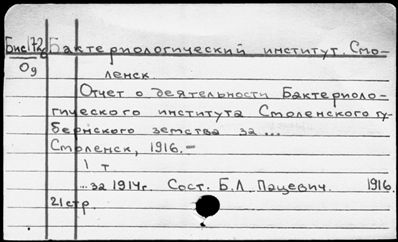 Бис 172б Бактериологический институт. Смо-
Од ленск
Отчет о деятельности Бактериоло-
гического института Смоленского гу-
бернского земства за ...
Смоленск, 1916.-
1 т
... за 1914г. Сост. Б.Л. Пацевич. 1916.
21 стр.